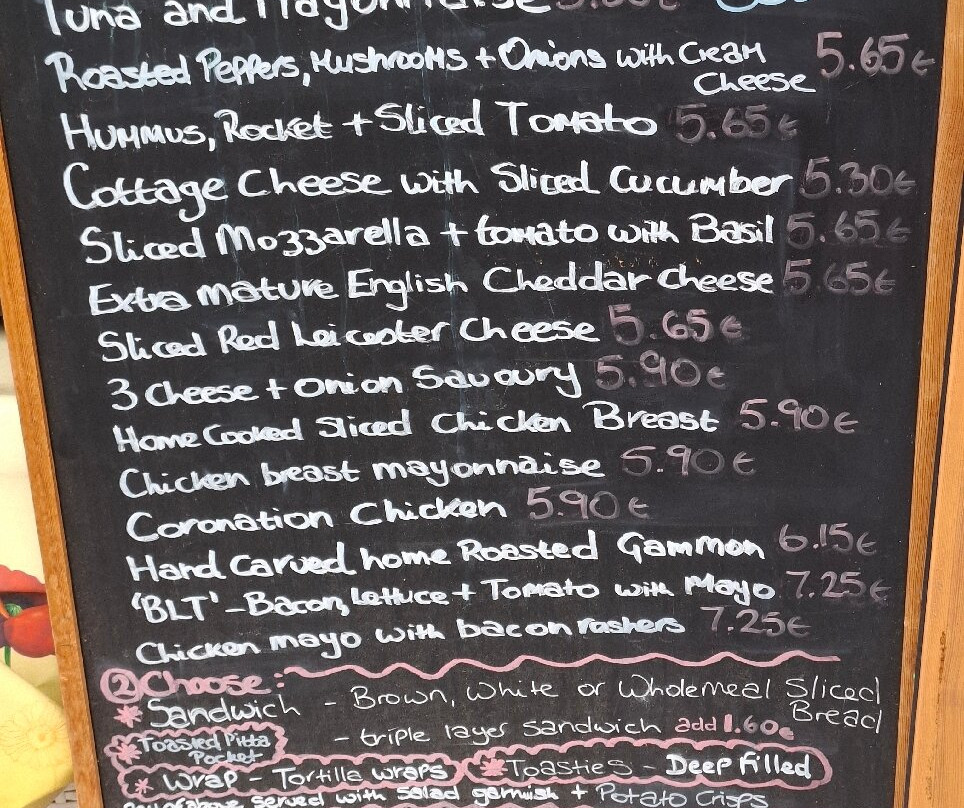 Tuna and Mayonnaise
Roasted Peppers, Mushrooms + Onions with Cream Cheese 5.65€
Hummus, Rocket + Sliced Tomato 5.65€
Cottage Cheese with Sliced Cucumber 5.30€
Sliced Mozzarella + tomato with Basil 5.65€
Extra mature English Cheddar cheese 5.65€
Sliced Red Leicester Cheese 5.65€
3 Cheese + Onion Savoury 5.90€
Home Cooked Sliced Chicken Breast 5.90€
Chicken breast mayonnaise 5.90€
Coronation Chicken 5.90€
Hard Carved home Roasted Gammon 6.15€
'BLT' - Bacon, lettuce + Tomato with Mayo 7.25€
Chicken mayo with bacon rashers 7.25€
② Choose:
* Sandwich - Brown, White or Wholemeal Sliced Bread
- triple layer sandwich add 1.60€
* Toasted Pitta Pocket
* Wrap - Tortilla wraps * Toasties - Deep Filled
above served with salad garnish + Potato Crisps